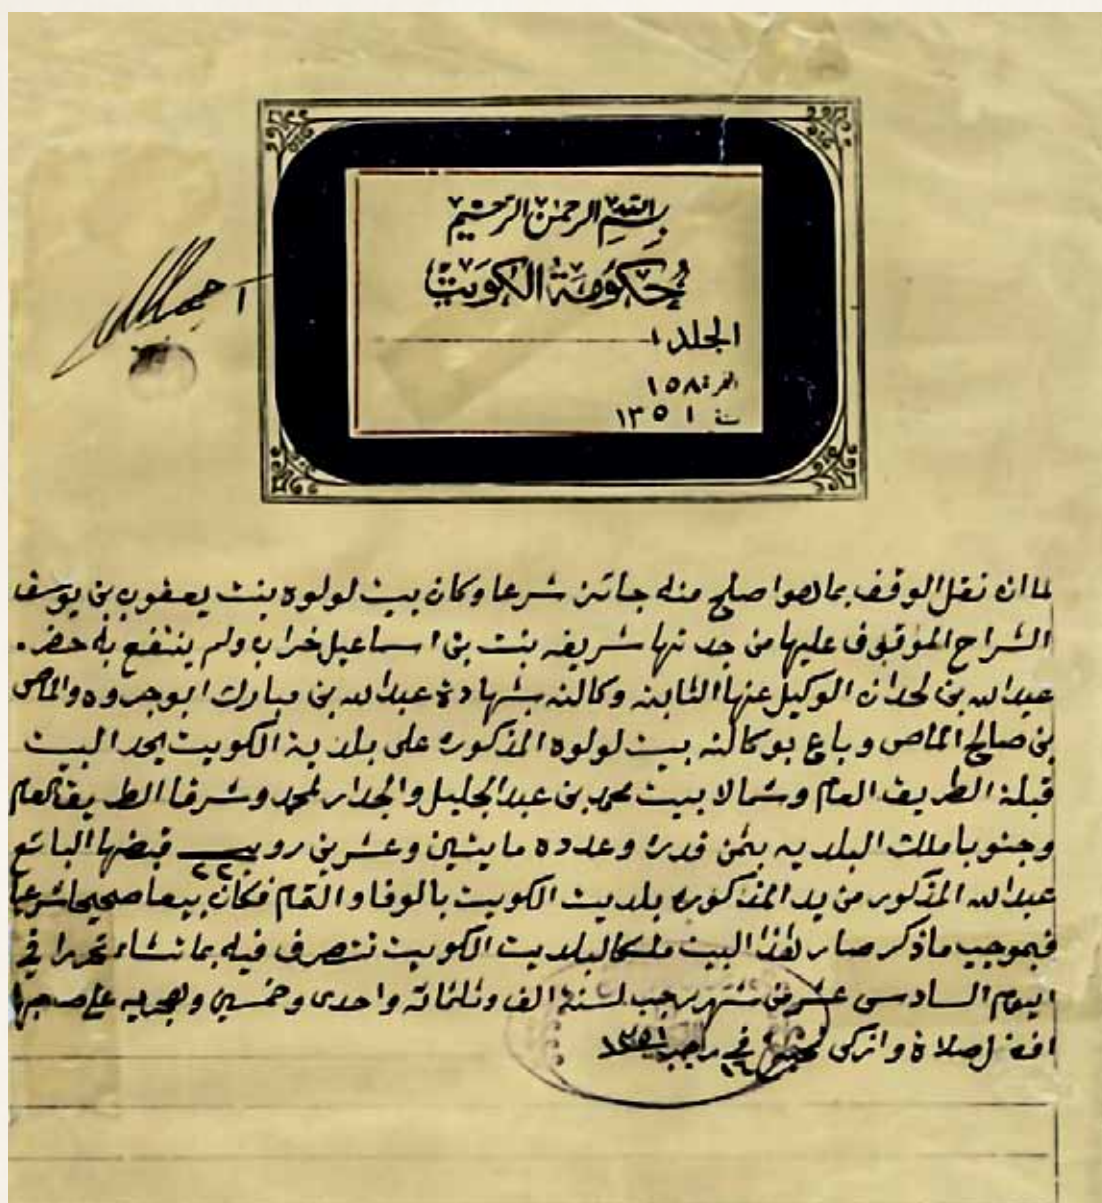 بسم الله الرحمن الرحيم
حكومة الكويت
الجلد ١
النمرة ١٥٨
سنة ١٣٥١
لما ان نقل الوقف بما هو اصلح منه جائز شرعا وكان بيت لولوه بنت يعقوب بن يوسف
الشراح الموقوف عليها من جدتها شريفه بنت بن اسماعيل خراب ولم ينتفع به حضر
عبد الله بن لحدان الوكيل عنها الثابته وكالته بشهادة عبد الله بن مبارك ابوجروه والماص
بن صالح الماص وباع بوكالته بيت لولوه المذكوره على بلدية الكويت يحد البيت
قبلة الطريق العام وشمالا بيت محمد بن عبد الجليل والجدار لمحمد وشرقا الطريق العام
وجنوبا ملك البلديه بثمن قدره وعدده مايتين وعشرين روبيه ٢٢٠ قبضها البائع
عبد الله المذكور من يد المذكوره بلديت الكويت بالوفا والتمام فكان بيعا صحيحا شرعيا
فبموجب ما ذكر صار هذا البيت ملكا لبلديت الكويت تتصرف فيه بما تشاء تحررا في
اليوم السادس عشر من شهر رجب لسنة الف وثلثماتة واحدى وخمسين وهجريه على صاحبها
افضل صلاة وازكى تحية في ١٦ رجب ١٣٥١